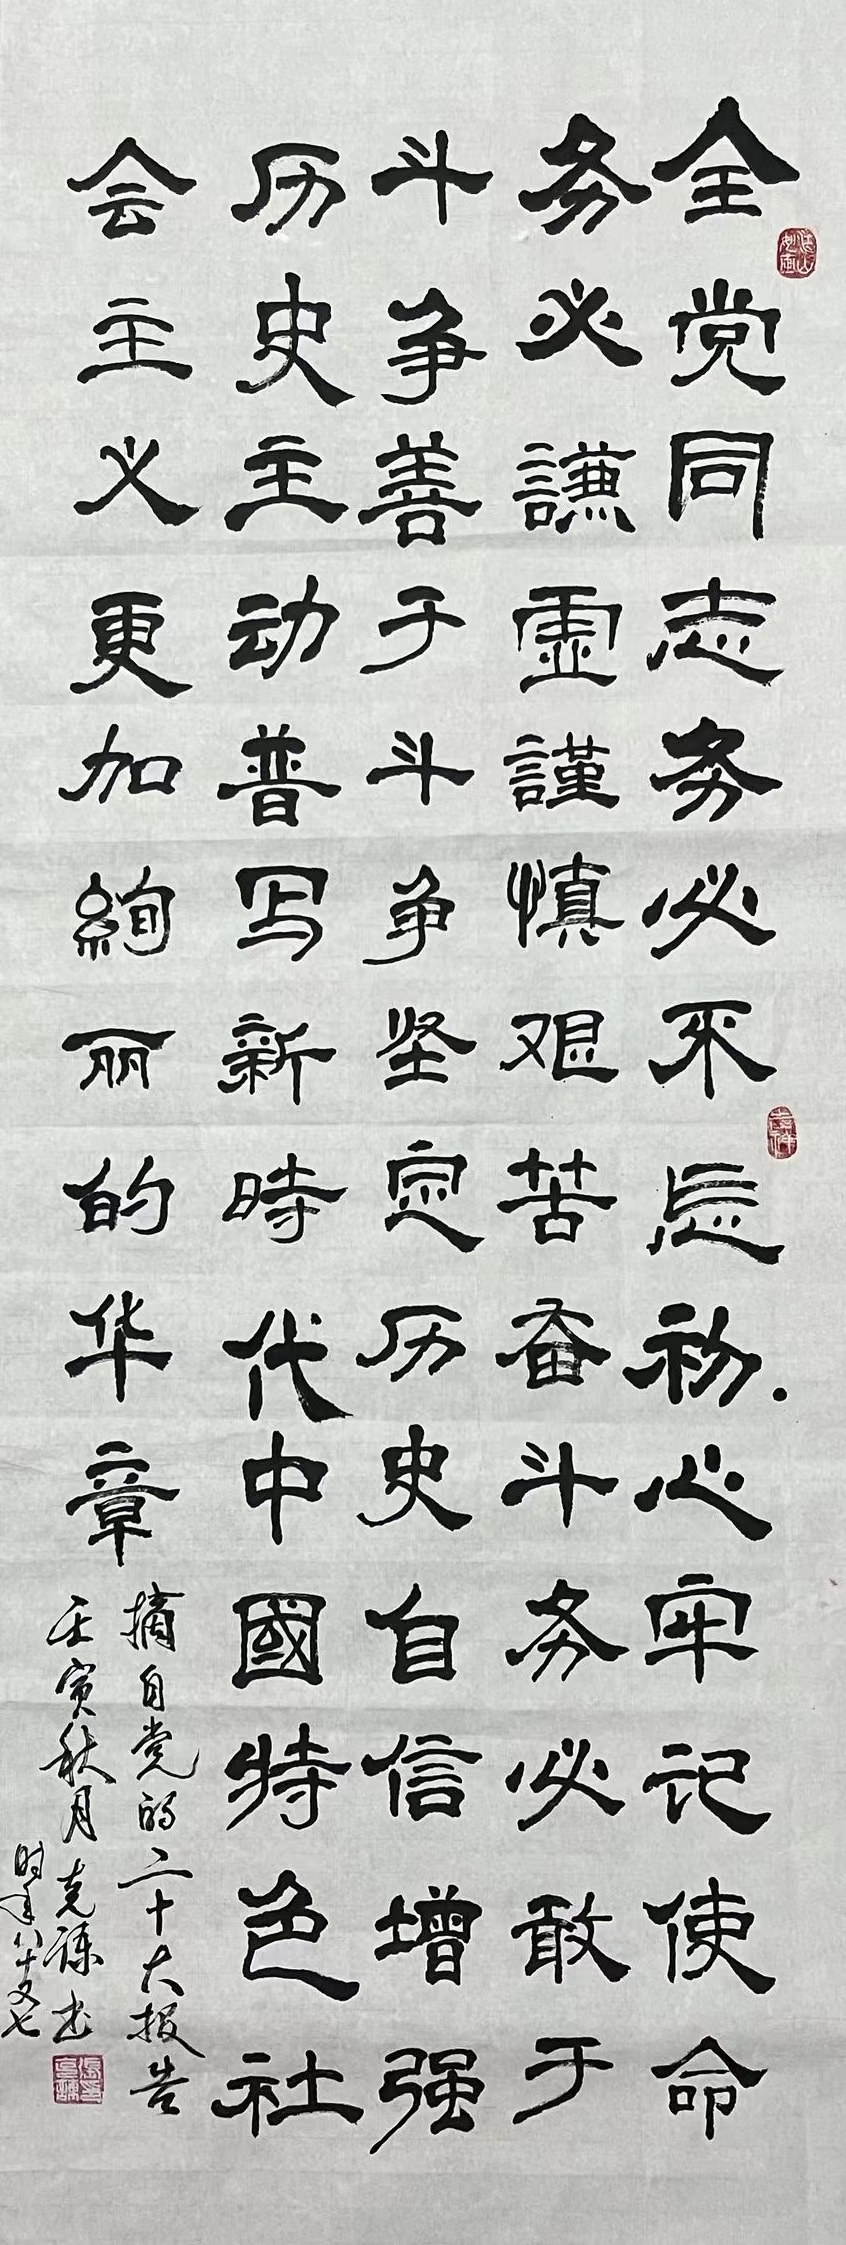 全党同志务必不忘初心牢记使命
务必謙虚謹慎艰苦奋斗务必敢于
斗争善于斗争坚定历史自信增强
历史主动普写新時代中國特色社
会主义更加絢丽的华章
摘自党的二十大报告
壬寅秋月克谦书
时年八十又七